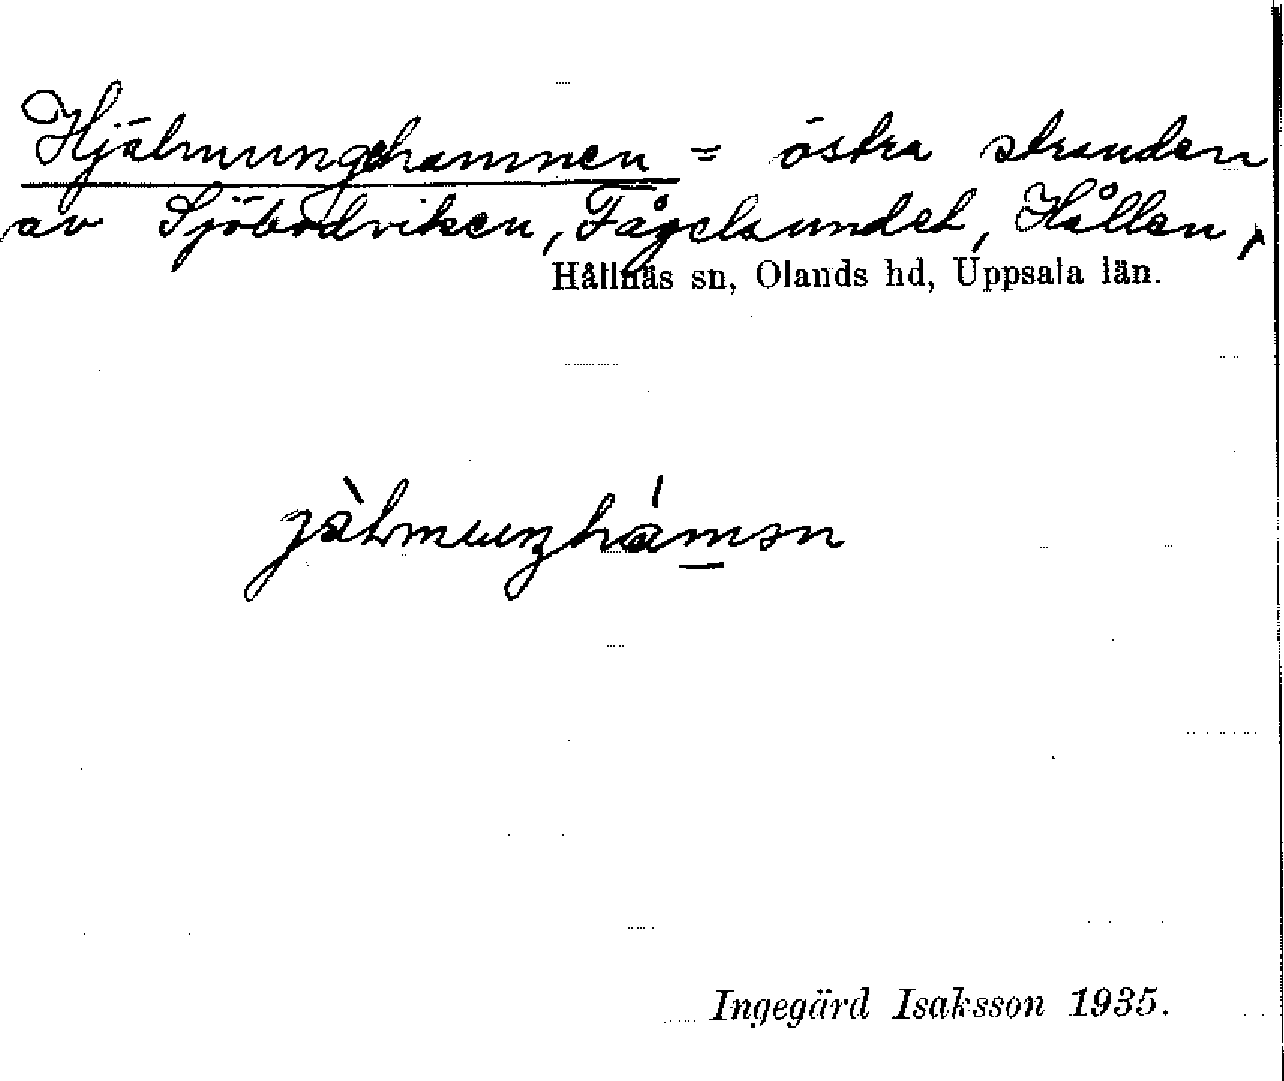 Hjälmungehamnen = östra stranden
av Sjöbodviken, Fågelsundet, Hållen,
Hållnäs sn, Olands hd, Uppsala län.
Ingegärd Isaksson 1935.